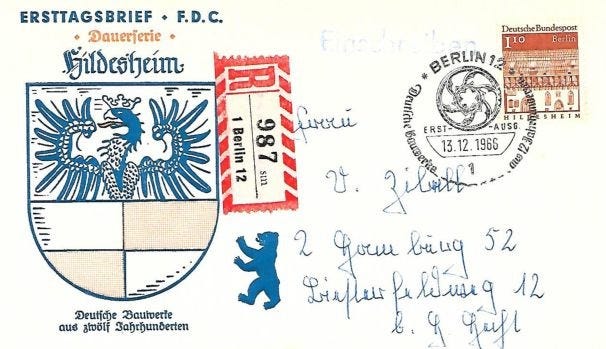 ERSTTAGSBRIEF • F.D.C.
• Dauerserie •
Hildesheim
Deutsche Bauwerke
aus zwölf Jahrhunderten
R
987
stn
1 Berlin 12
Einschreiben
Deutsche Bundespost
110
Berlin
HILDESHEIM
* BERLIN 12 *
Deutsche Bauwerke aus 12 Jahrhunderten
ERST- AUSG.
13.12.1966
1
Herrn
V.
2 Hamburg 52
12